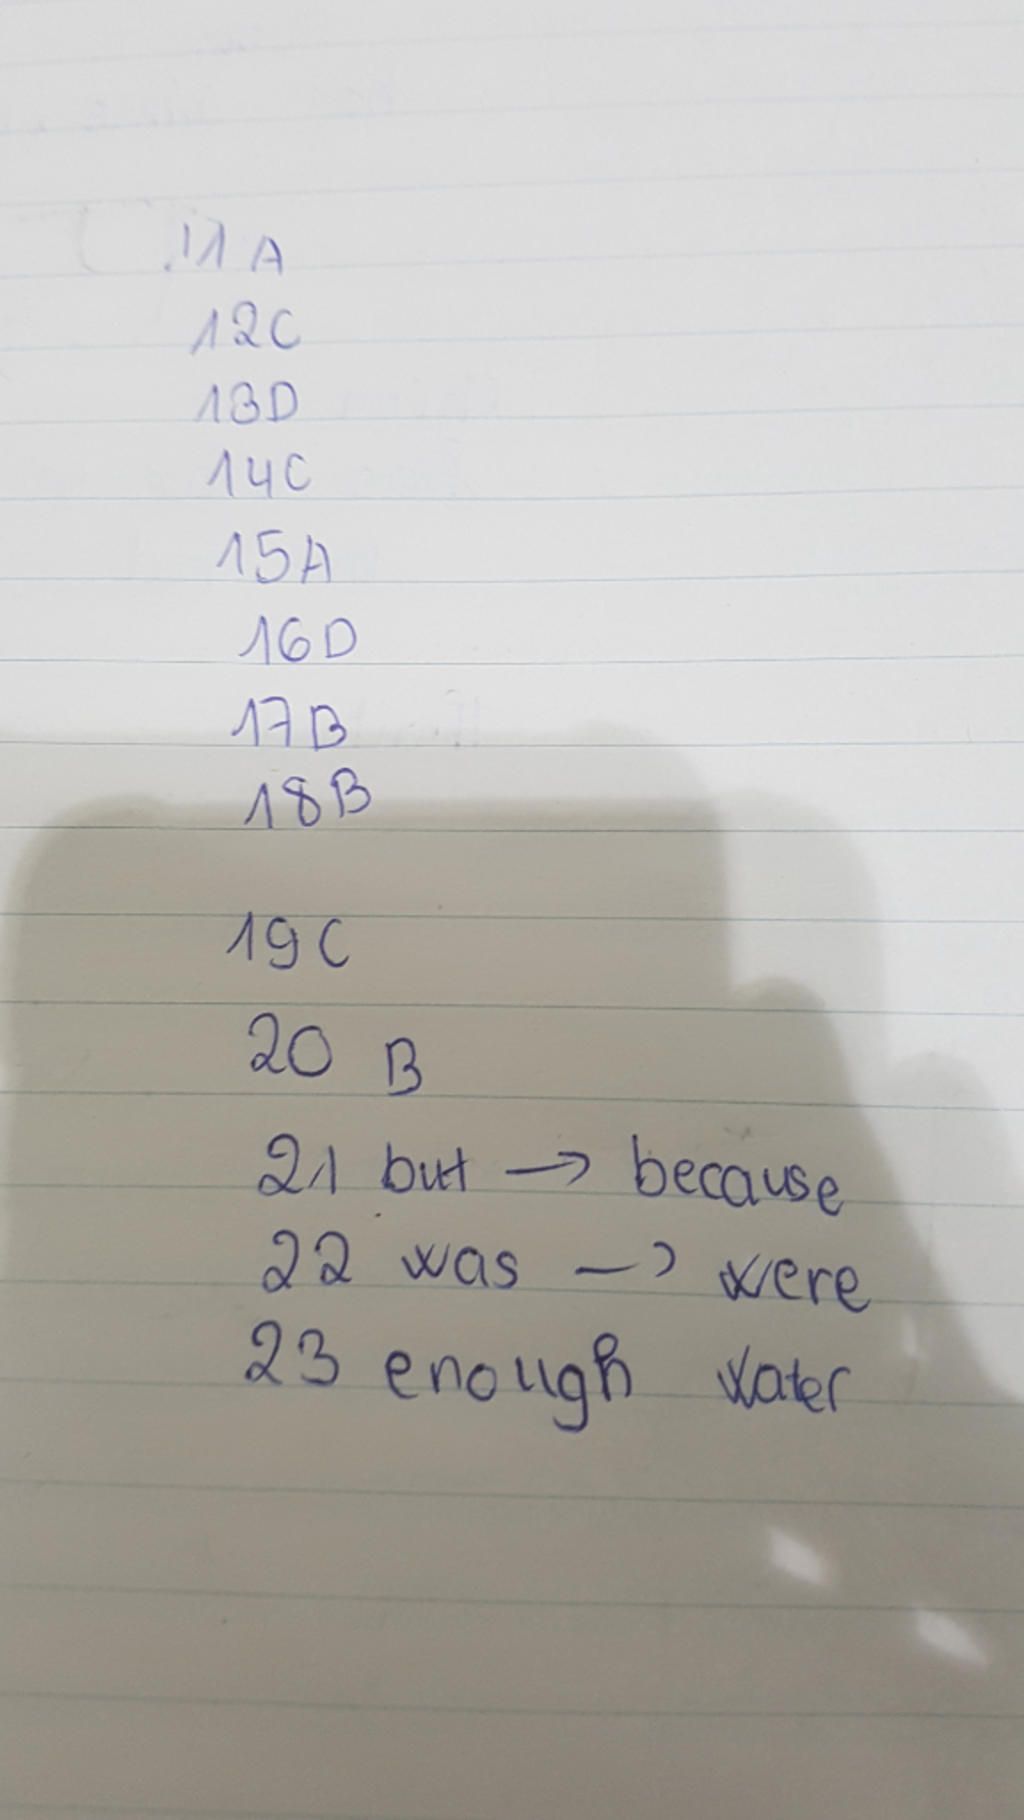 11 A
12C
13D
14C
15A
16D
17B
18B
19C
20 B
21 but → because
22 was → were
23 enough water